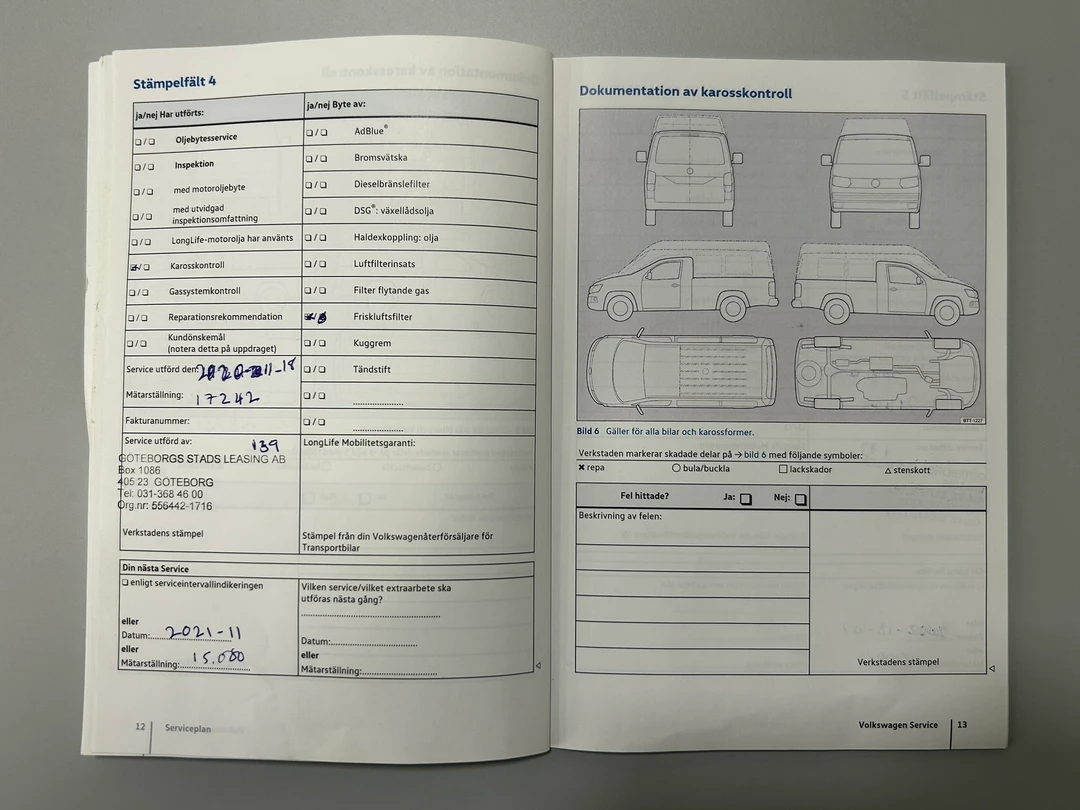 Stämpelfält 4
ja/nej Har utförts:
ja/nej Byte av:
❑/❑ Oljebytesservice
❑/❑ AdBlue®
❑/❑ Inspektion
❑/❑ Bromsvätska
❑/❑ med motoroljebyte
❑/❑ Dieselbränslefilter
❑/❑ med utvidgad
inspektionsomfattning
❑/❑ DSG®: växellådsolja
❑/❑ LongLife-motorolja har använts
❑/❑ Haldexkoppling: olja
❑/❑ Karosskontroll
❑/❑ Luftfilterinsats
❑/❑ Gassystemkontroll
❑/❑ Filter flytande gas
❑/❑ Reparationsrekommendation
❑/❑ Friskluftsfilter
❑/❑ Kundönskemål
(notera detta på uppdraget)
❑/❑ Kuggrem
Service utförd den: 11-18
❑/❑ Tändstift
Mätarställning: 17242
❑/❑
Fakturanummer:
❑/❑
Service utförd av: 139
LongLife Mobilitetsgaranti:
GÖTEBORGS STADS LEASING AB
Box 1086
405 23 GÖTEBORG
Tel: 031-368 46 00
Org.nr: 556442-1716
Verkstadens stämpel
Stämpel från din Volkswagenåterförsäljare för
Transportbilar
Din nästa Service
❑ enligt serviceintervallindikeringen
Vilken service/vilket extraarbete ska
utföras nästa gång?
eller
Datum: 2021-11
eller
Mätarställning: 15.000
Datum:
eller
Mätarställning:
12 Serviceplan
Dokumentation av karosskontroll
B7T-1227
Bild 6 Gäller för alla bilar och karossformer.
Verkstaden markerar skadade delar på → bild 6 med följande symboler:
✖ repa ○ bula/buckla □ lackskador △ stenskott
Fel hittade? Ja: ❑ Nej: ❑
Beskrivning av felen:
Verkstadens stämpel
Volkswagen Service 13